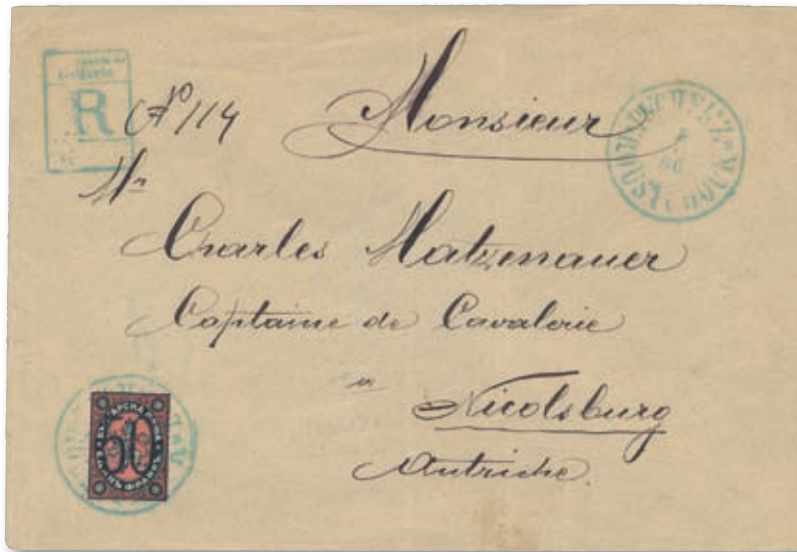 R
No 114
Monsieur
Mr
Charles Matzenauer
Captaine de Cavalerie
Nicolsburg
Autriche.
50